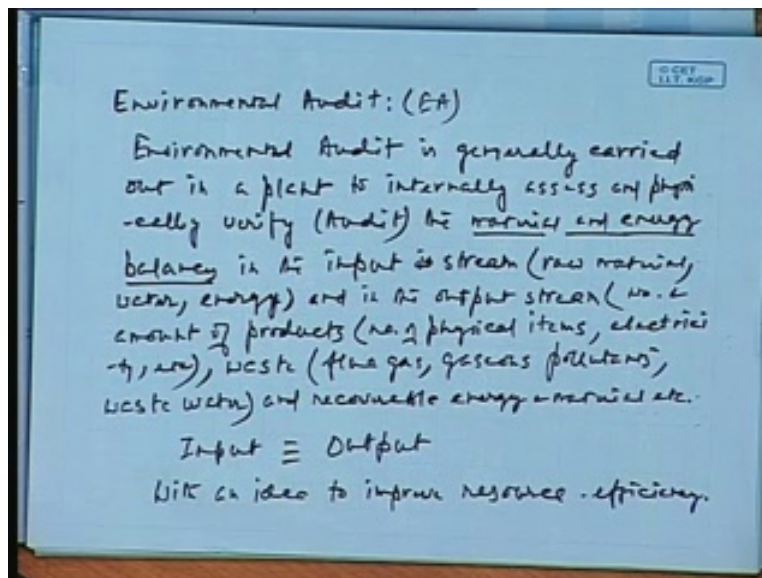 © CET
I.I.T. KGP
Environmental Audit: (EA)
Environmental Audit is generally carried
out in a plant to internally assess and physi
-cally verify (Audit) the material and energy
balance in the input stream (raw material,
water, energy) and in the output stream (no. &
amount of products (no. of physical items, electrici
-ty, etc), waste (flue gas, gaseous pollutants,
waste water) and recoverable energy & material etc.
Input ≡ Output
With an idea to improve resource-efficiency.